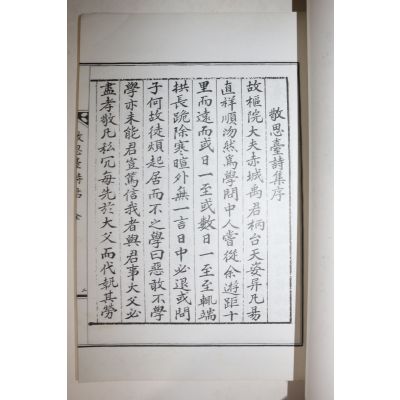 敬思臺詩集序
故樞院大夫赤城禹君柄台天姿昇凡易
直祥順沕然爲學問中人嘗從余遊距十
里而遠而或日一至或數日一至至輒端
拱長跪除寒暄外無一言日中必退或問
子何故徒煩起居而不之學曰惡敢不學
學亦未能君篤信我者與君事大父必
盡孝敬凡私冗每先於大父而代執其勞
敬思臺詩